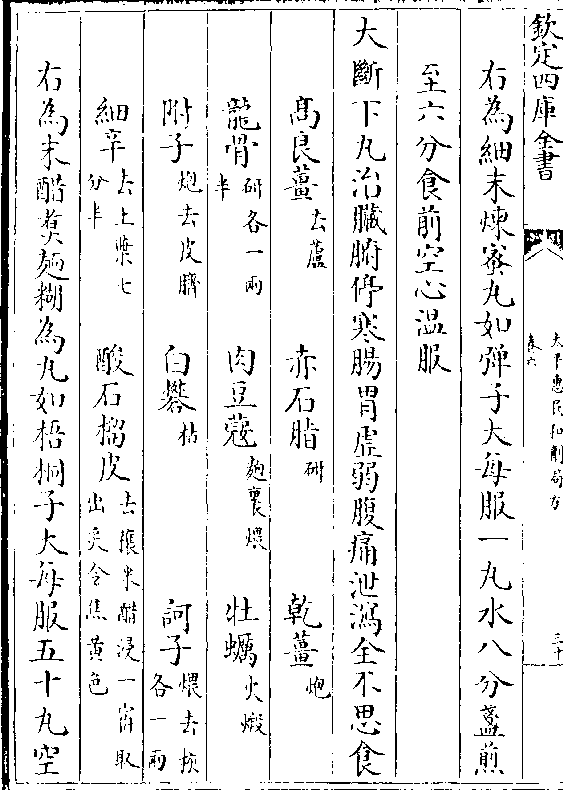 欽定四庫全書
太平惠民和劑局方
卷六
三十
右為細末煉蜜丸如彈子大每服一丸水八分盞煎
至六分食前空心温服
大斷下丸治臟腑停寒腸胃虛弱腹痛泄瀉全不思食
高良薑去蘆 赤石脂研 乾薑炮
龍骨研各一兩半 肉豆蔻麪裹煨 牡蠣火煅
附子炮去皮臍 白礬枯 訶子煨去核各一兩
細辛去土葉七分半 酸石榴皮去穰米醋浸一宿取出炙令焦黄色
右為末醋煑麺糊為丸如梧桐子大每服五十丸空